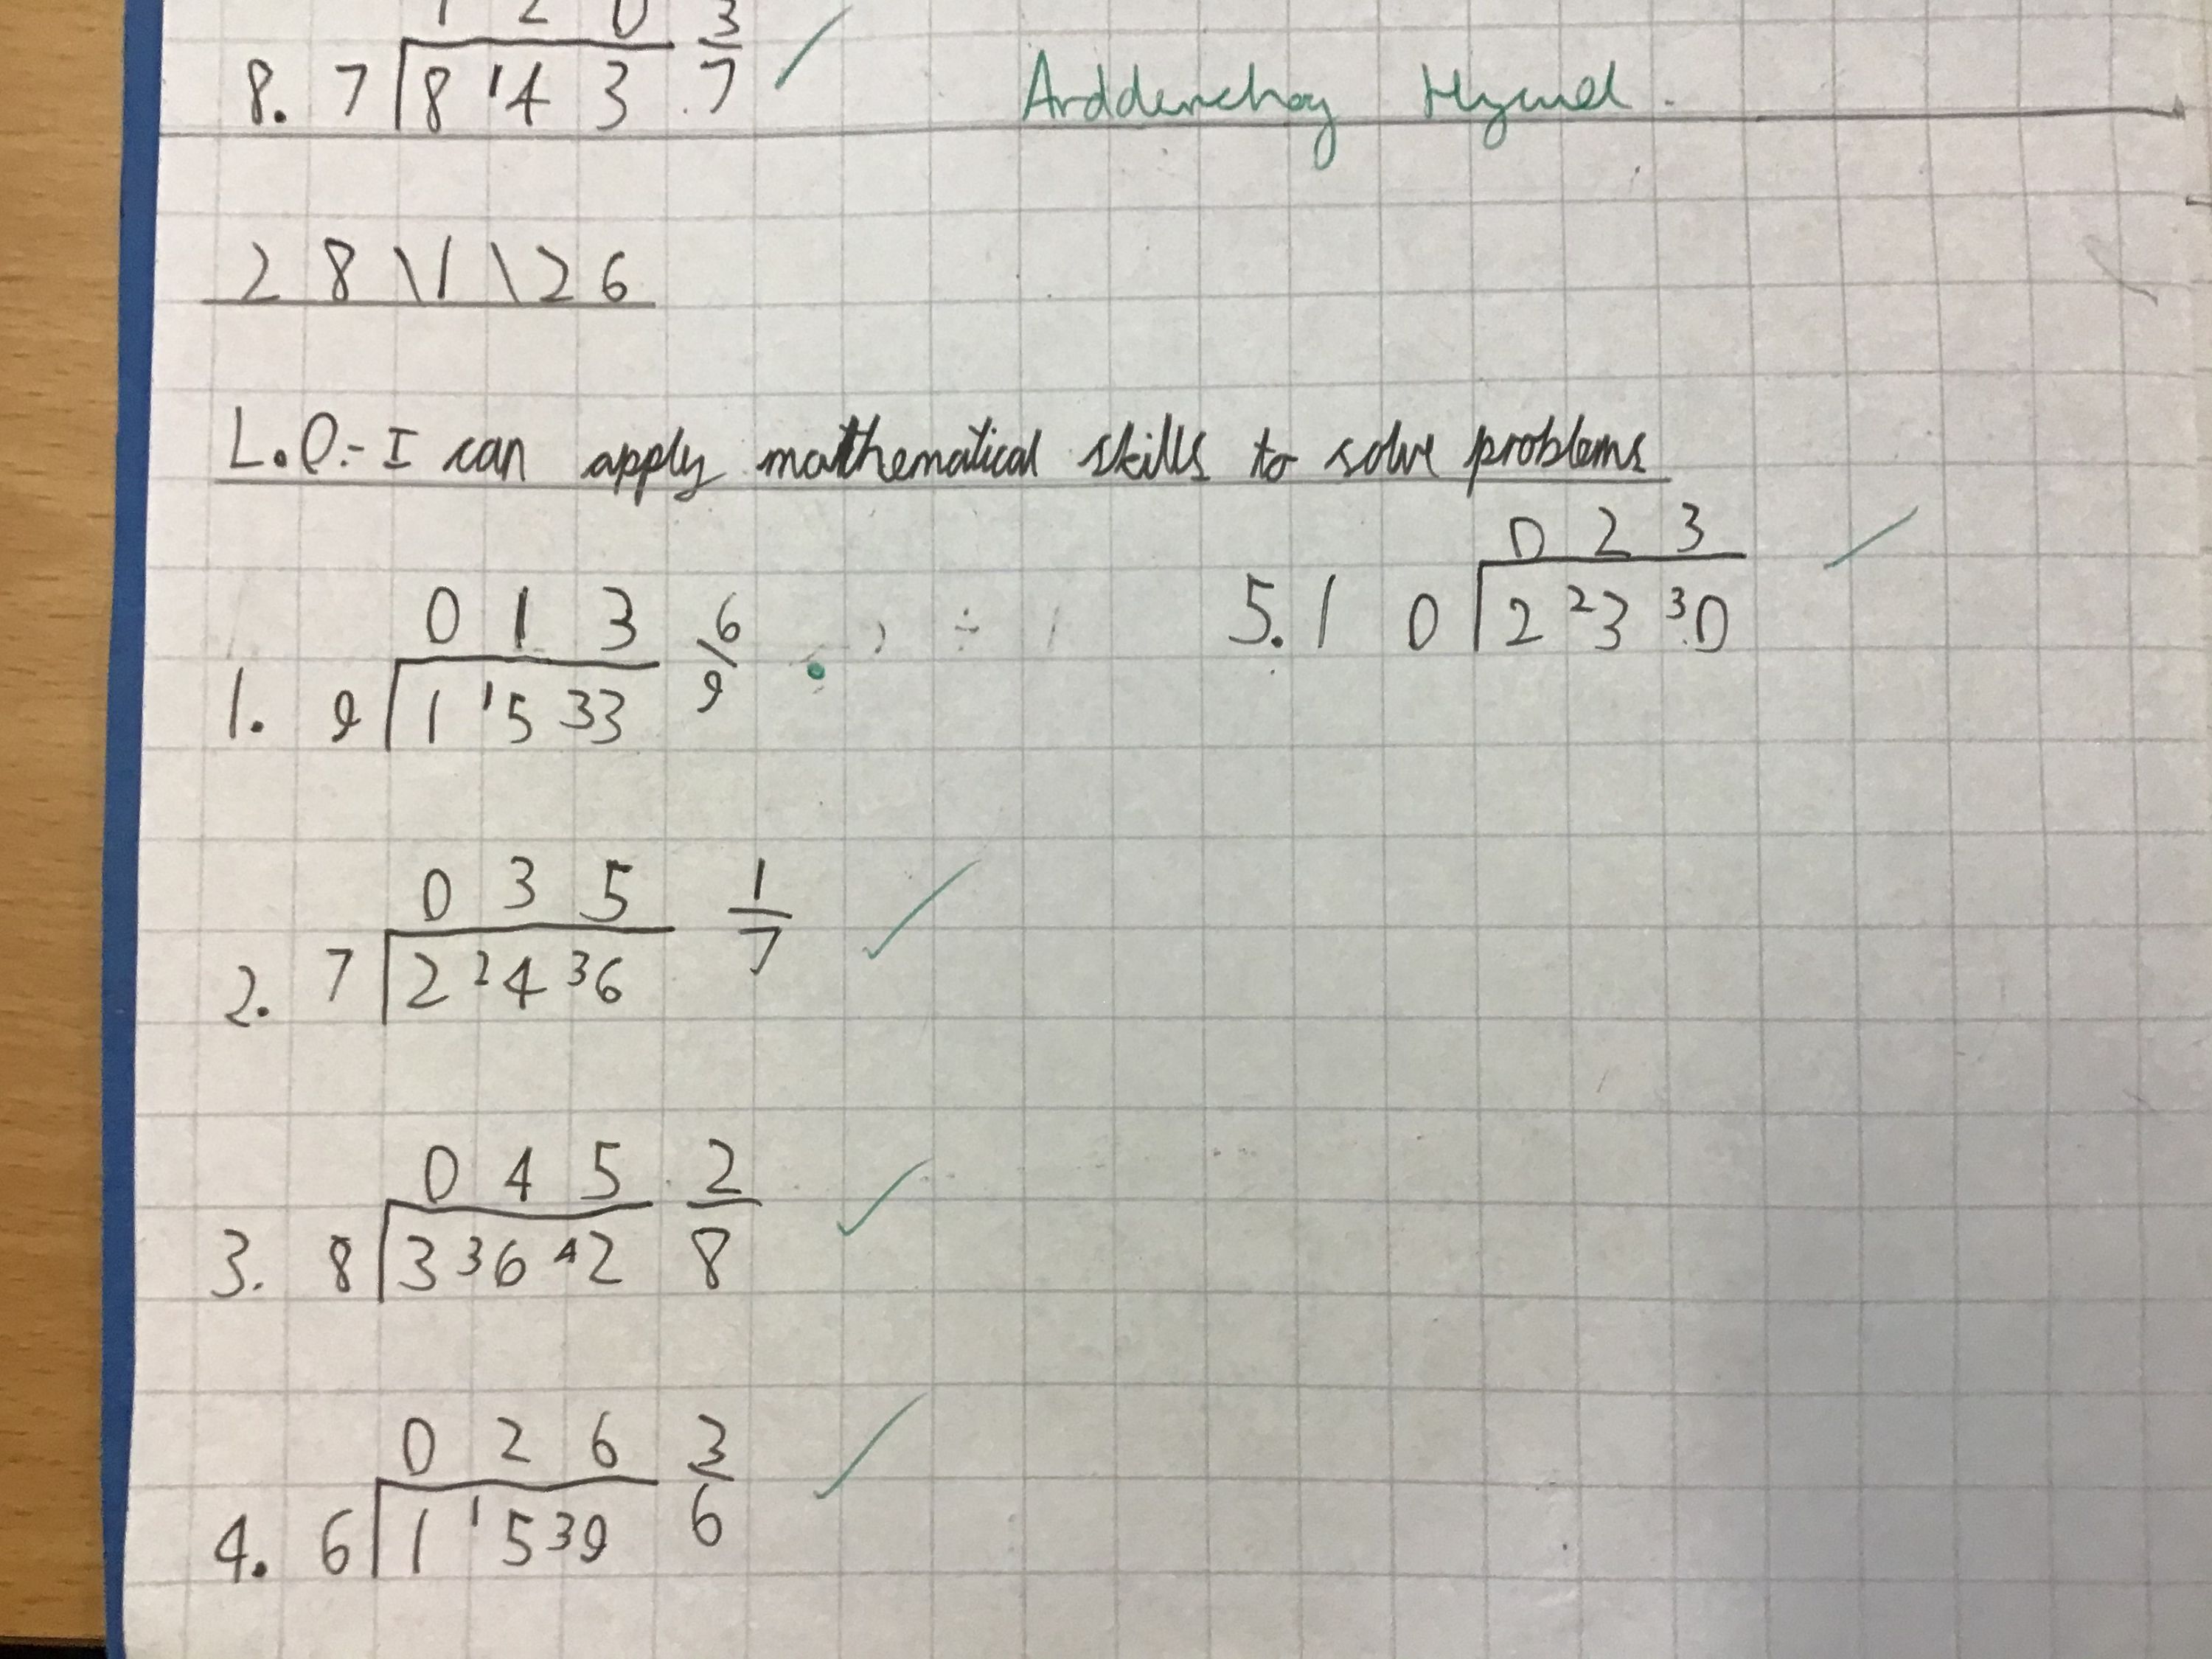 1 2 0 3/7
8. 7 8 1 4 3
Ardderchog Hywel.
28\1\26
L.O:- I can apply mathematical skills to solve problems
0 1 3 6/9
1. 9 1 1 5 3 3
0 3 5 1/7
2. 7 2 2 4 3 6
0 4 5 2/8
3. 8 3 3 6 4 2
0 2 6 3/6
4. 6 1 1 5 3 9
0 2 3
5. 1 0 2 2 3 3 0